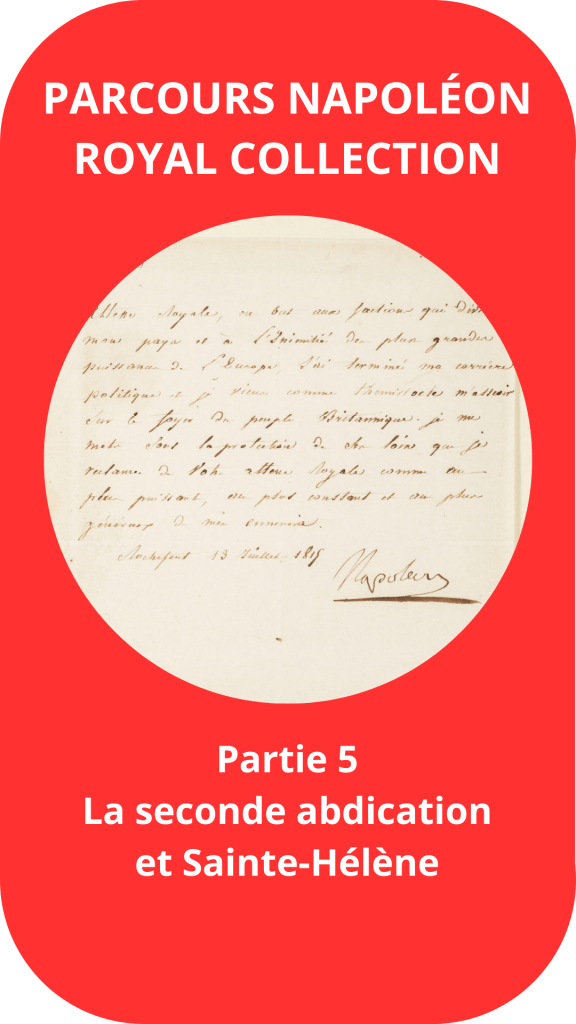 PARCOURS NAPOLÉON
ROYAL COLLECTION
Altesse Royale, en but aux factions qui divi
mon pays et à l'Inimitié des plus grandes
puissances de l'Europe J'ai terminé ma carriere
politique et je viens comme Themistocle m'asseoir
sur le foyer du peuple Britannique. je me
mets sous la protection de ses loix que je
reclame de Votre Altesse Royale comme au
plus puissant, au plus constant et au plus
généreux de mes ennemis.
Rochefort 13 Juillet 1815
Napoleon
Partie 5
La seconde abdication
et Sainte-Hélène